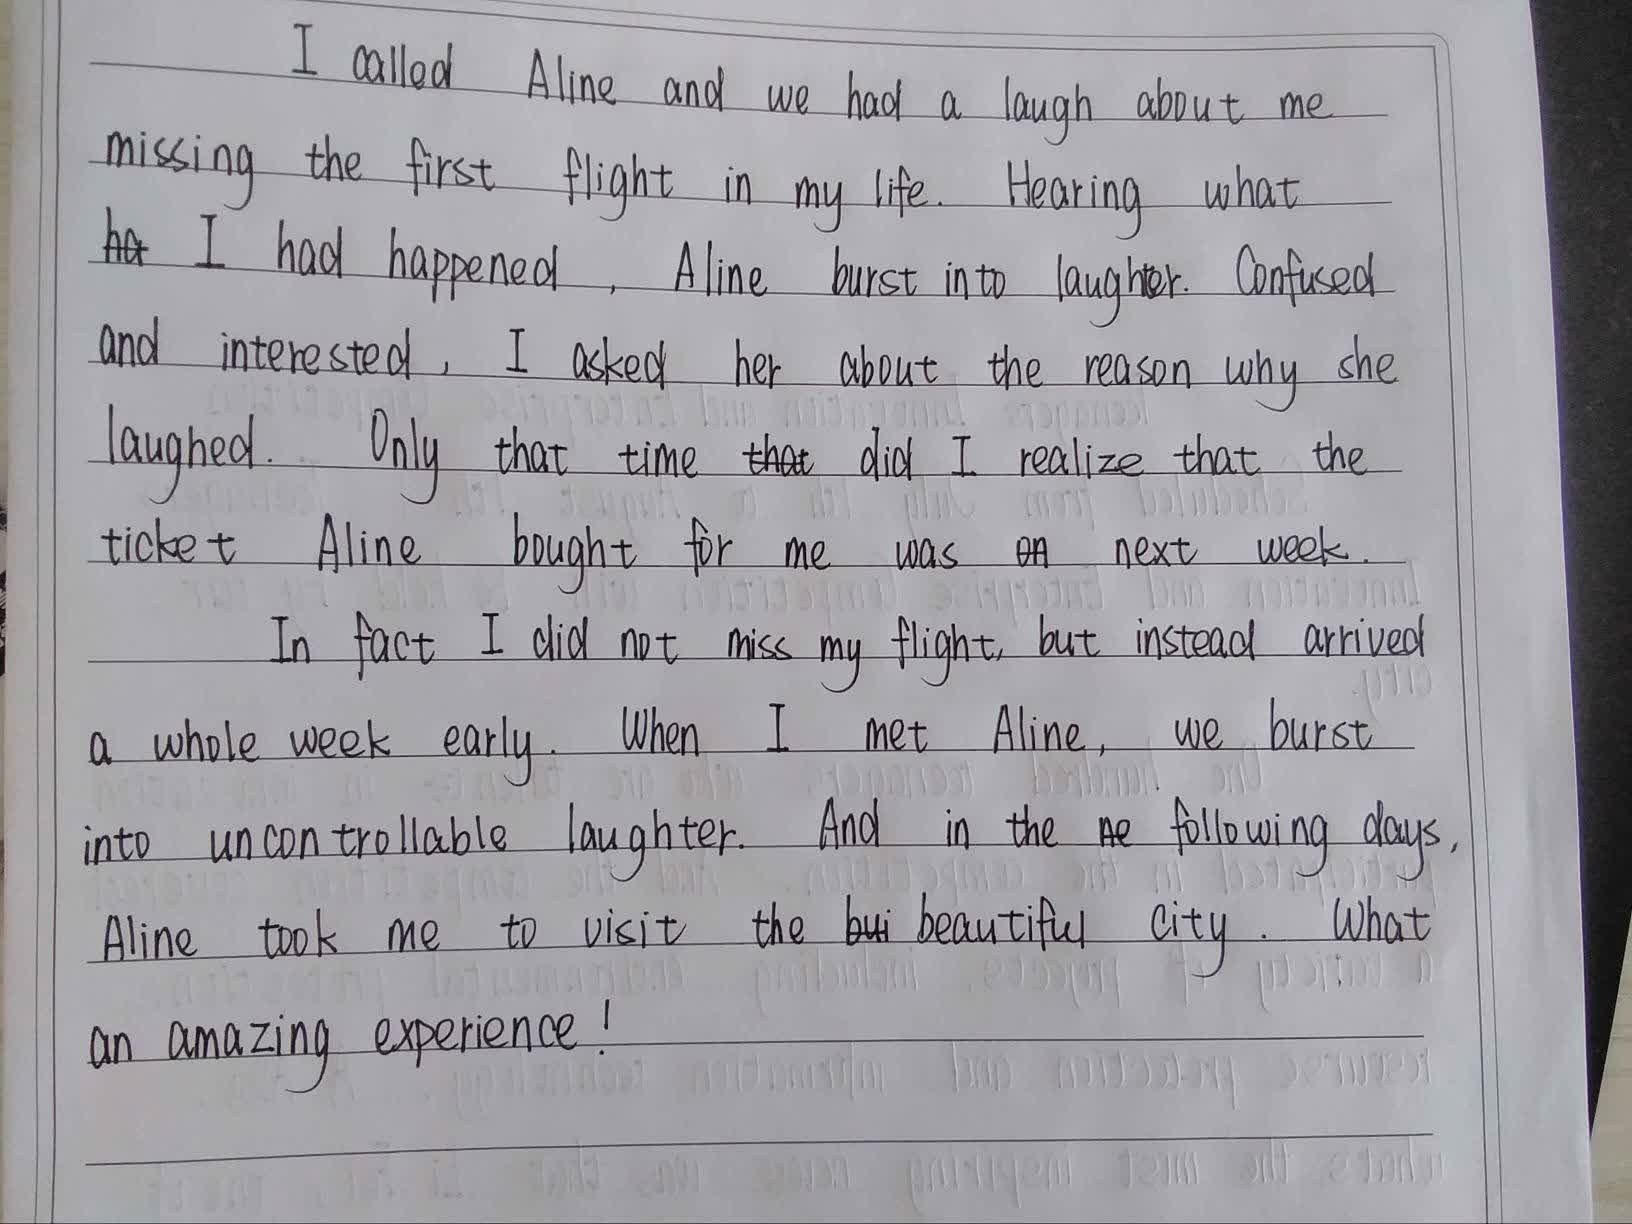 I called Aline and we had a laugh about me
missing the first flight in my life. Hearing what
I had happened, Aline burst into laughter. Confused
and interested, I asked her about the reason why she
laughed. Only that time did I realize that the
ticket Aline bought for me was next week.
In fact I did not miss my flight, but instead arrived
a whole week early. When I met Aline, we burst
into uncontrollable laughter. And in the following days,
Aline took me to visit the beautiful city. What
an amazing experience!